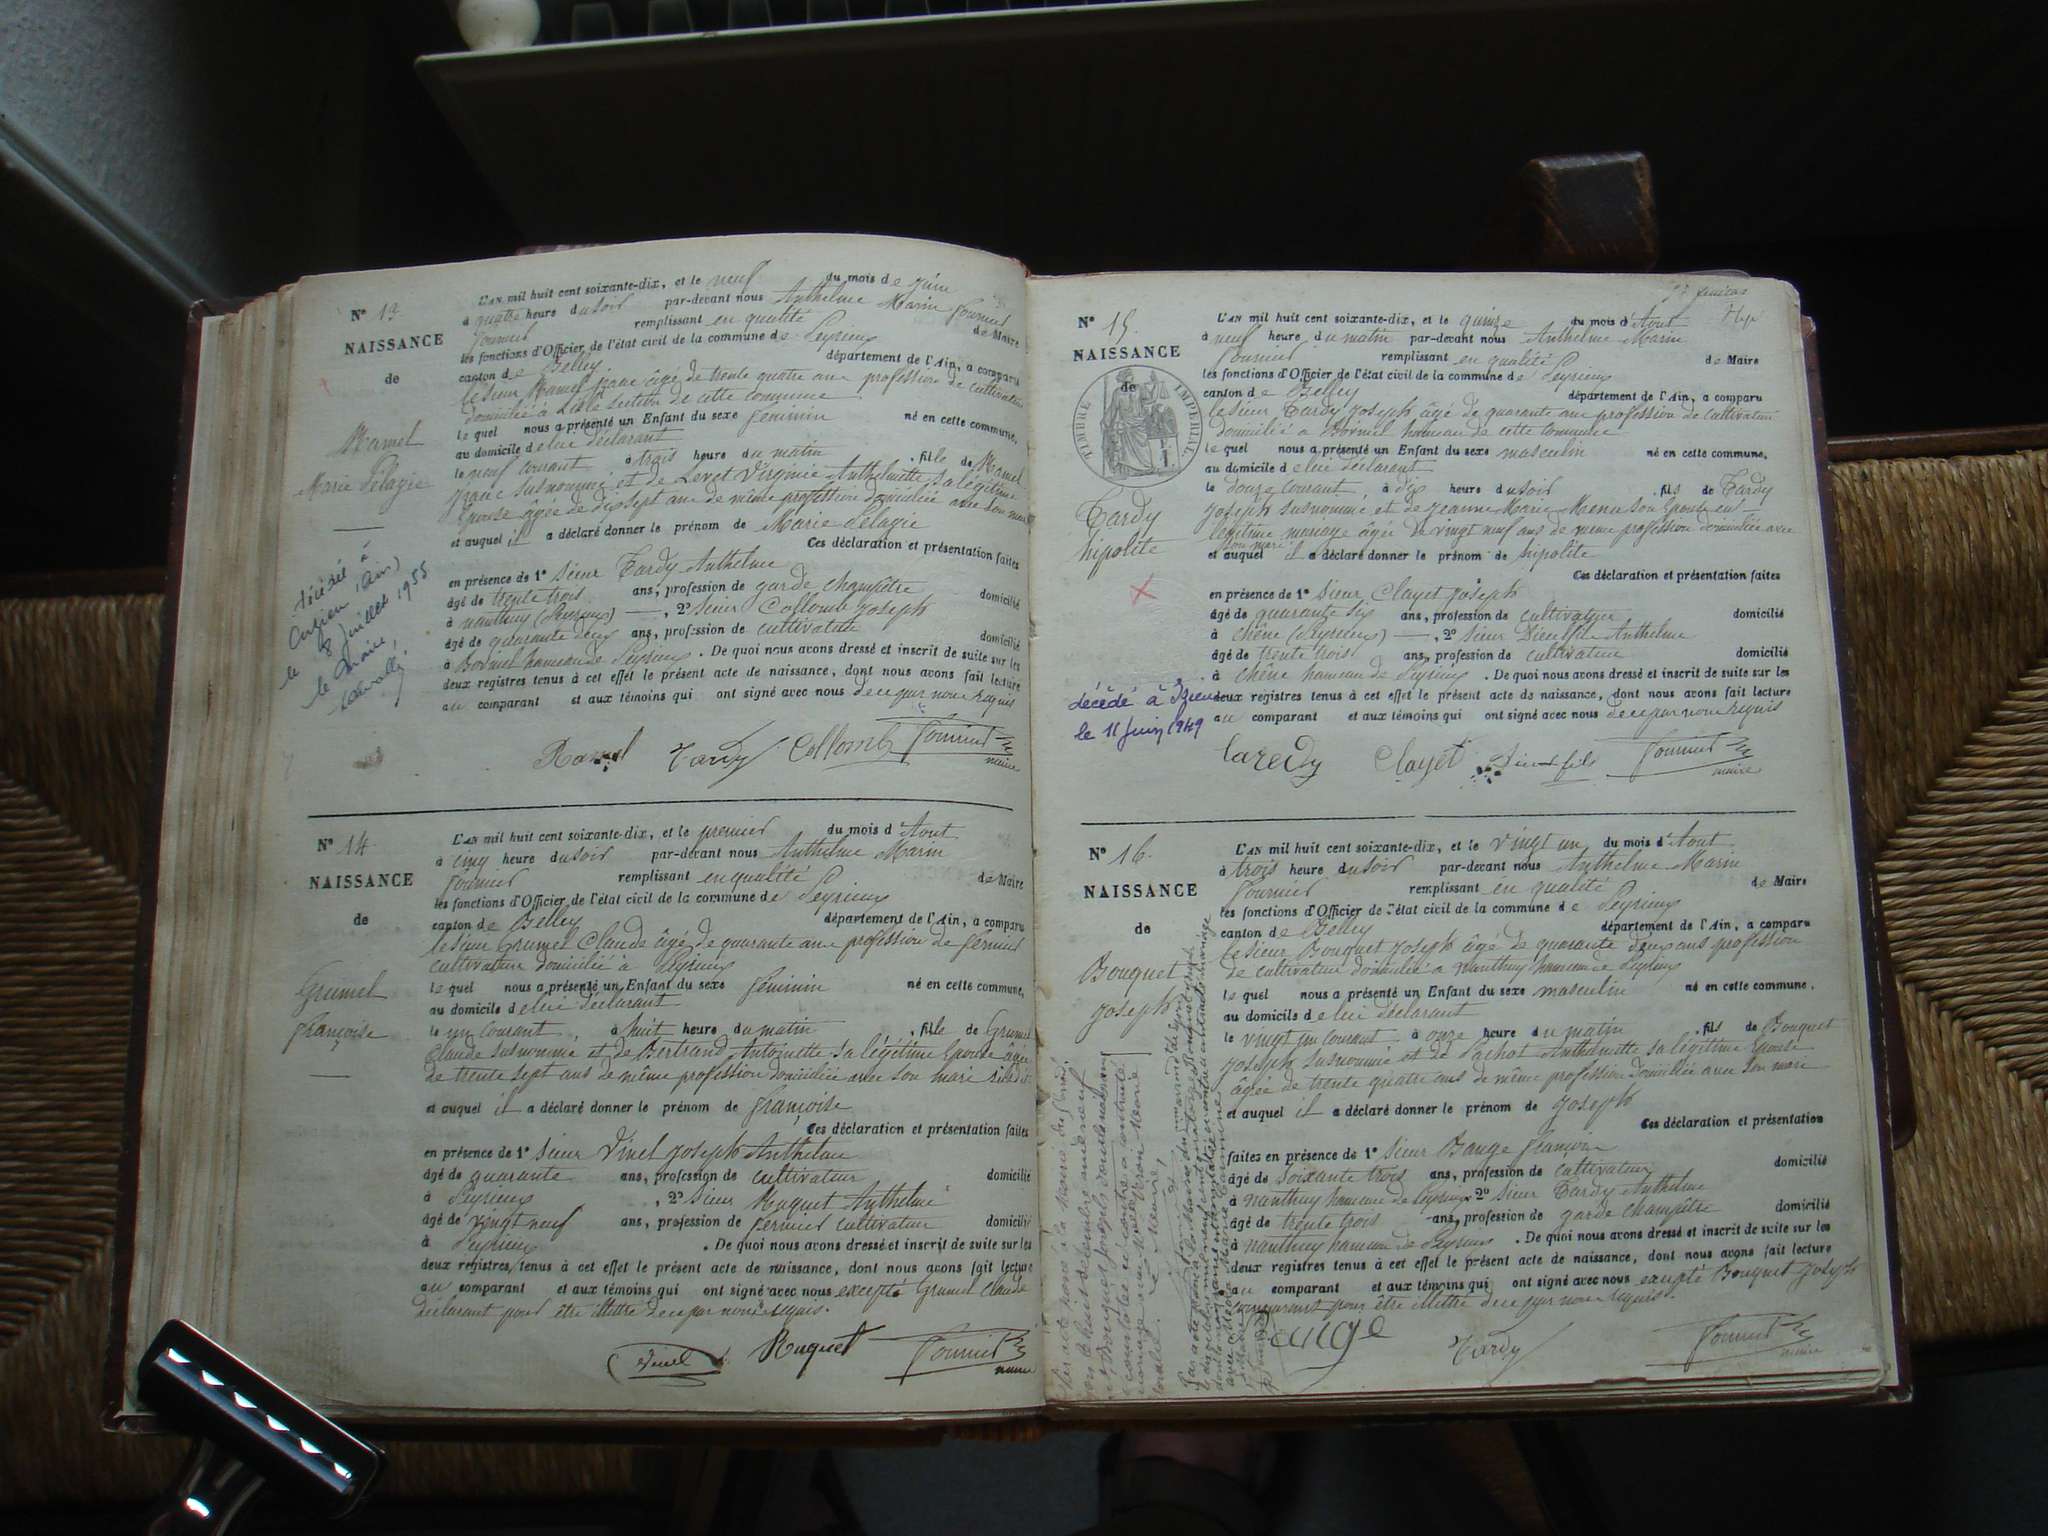 N° 13
NAISSANCE
de
Ramel
Marie Pélagie
décédée à
(Ain)
le 8 juillet 1955
le Maire,
L'AN mil huit cent soixante-dix, et le neuf du mois de juin
à quatre heure du soir par-devant nous Anthelme Marin Fournier
Fournier remplissant en qualité de Maire
les fonctions d'Officier de l'état civil de la commune de Peyrieux
canton de Belley département de l'Ain, a comparu
le sieur Ramel franc âgé de trente quatre ans profession de cultivateur
domicilié à section de cette commune
le quel nous a présenté un Enfant du sexe feminin né en cette commune,
au domicile de lui déclarant
le neuf courant à trois heure du matin , fille de Ramel
franc susnommé et de Levet Virginie Anthelmette sa légitime
Epouse âgée de dix sept ans de même profession domiciliée avec son mari
et auquel il a déclaré donner le prénom de Marie Pelagie
Ces déclaration et présentation faites
en présence de 1° sieur Tardy Anthelme
âgé de trente trois ans, profession de garde champêtre domicilié
à nanthuy (Peyrieux) , 2° sieur Collomb Joseph
âgé de quarante deux ans, profession de cultivateur domicilié
à hameau de Peyrieux . De quoi nous avons dressé et inscrit de suite sur les
deux registres tenus à cet effet le présent acte de naissance, dont nous avons fait lecture
au comparant et aux témoins qui ont signé avec nous de ce par nous requis
Ramel Tardy Collomb Fournier
maire
N° 14
NAISSANCE
de
Grumel
françoise
L'AN mil huit cent soixante-dix, et le premier du mois d'Aout
à cinq heure du soir par-devant nous Anthelme Marin
Fournier remplissant en qualité de Maire
les fonctions d'Officier de l'état civil de la commune de Peyrieux
canton de Belley département de l'Ain, a comparu
le sieur Grumel Claude âgé de quarante ans profession de fermier
cultivateur domicilié à Peyrieux
le quel nous a présenté un Enfant du sexe féminin né en cette commune,
au domicile de lui déclarant
le un courant à huit heure du matin , fille de Grumel
Claude susnommé et de Bertrand Antoinette sa légitime Epouse âgée
de trente sept ans de même profession domiciliée avec son mari susdit
et auquel il a déclaré donner le prénom de françoise
Ces déclaration et présentation faites
en présence de 1° sieur Vinel Joseph Anthelme
âgé de quarante ans, profession de cultivateur domicilié
à Peyrieux , 2° sieur Ruguet Anthelme
âgé de vingt neuf ans, profession de fermier cultivateur domicilié
à Peyrieux . De quoi nous avons dressé et inscrit de suite sur les
deux registres tenus à cet effet le présent acte de naissance, dont nous avons fait lecture
au comparant et aux témoins qui ont signé avec nous excepté Grumel Claude
déclarant pour être illettré de ce par nous requis.
Vinel Ruguet Fournier
maire
N° 15.
NAISSANCE
de
TIMBRE IMPERIAL
Tardy
hipolite
décédé à Izieu
le 11 juin 1949
L'AN mil huit cent soixante-dix, et le quinze du mois d'Aout
à neuf heure du matin par-devant nous Anthelme Marin
Fournier remplissant en qualité de Maire
les fonctions d'Officier de l'état civil de la commune de Peyrieux
canton de Belley département de l'Ain, a comparu
le sieur Tardy Joseph âgé de quarante ans profession de cultivateur
domicilié à hameau de cette commune
le quel nous a présenté un Enfant du sexe masculin né en cette commune,
au domicile de lui déclarant
le douze courant, à dix heure du soir , fils de Tardy
Joseph susnommé et de Jeanne Marie son Epouse en
légitime mariage âgée de vingt neuf ans de même profession domiciliée avec
son mari
et auquel il a déclaré donner le prénom de hipolite
Ces déclaration et présentation faites
en présence de 1° sieur Clayet Joseph
âgé de quarante six ans, profession de cultivateur domicilié
à chêne (Peyrieux) , 2° sieur Anthelme
âgé de trente trois ans, profession de cultivateur domicilié
à chêne hameau de Peyrieux . De quoi nous avons dressé et inscrit de suite sur les
deux registres tenus à cet effet le présent acte de naissance, dont nous avons fait lecture
au comparant et aux témoins qui ont signé avec nous de ce par nous requis
Taredy Clayet fils Fournier
maire
N° 16.
NAISSANCE
de
Bouguet
Joseph
L'AN mil huit cent soixante-dix, et le vingt un du mois d'Aout
à trois heure du soir par-devant nous Anthelme Marin
Fournier remplissant en qualité de Maire
les fonctions d'Officier de l'état civil de la commune de Peyrieux
canton de Belley département de l'Ain, a comparu
le sieur Bouguet Joseph âgé de quarante deux ans profession
de cultivateur domicilié à nanthuy hameau de Peyrieux
le quel nous a présenté un Enfant du sexe masculin né en cette commune,
au domicile de lui déclarant
le vingt un courant à onze heure du matin , fils de Bouguet
Joseph susnommé et de Anthelmette sa légitime Epouse
âgée de trente quatre ans de même profession domiciliée avec son mari
et auquel il a déclaré donner le prénom de Joseph
Ces déclaration et présentation
faites en présence de 1° sieur Bauge françois
âgé de soixante trois ans, profession de cultivateur domicilié
à nanthuy hameau de Peyrieux 2° sieur Tardy Anthelme
âgé de trente trois ans, profession de garde champêtre domicilié
à nanthuy hameau de Peyrieux . De quoi nous avons dressé et inscrit de suite sur les
deux registres tenus à cet effet le présent acte de naissance, dont nous avons fait lecture
au comparant et aux témoins qui ont signé avec nous excepté Bouguet Joseph
comparant pour être illettré de ce par nous requis.
Bauge Tardy Fournier
maire